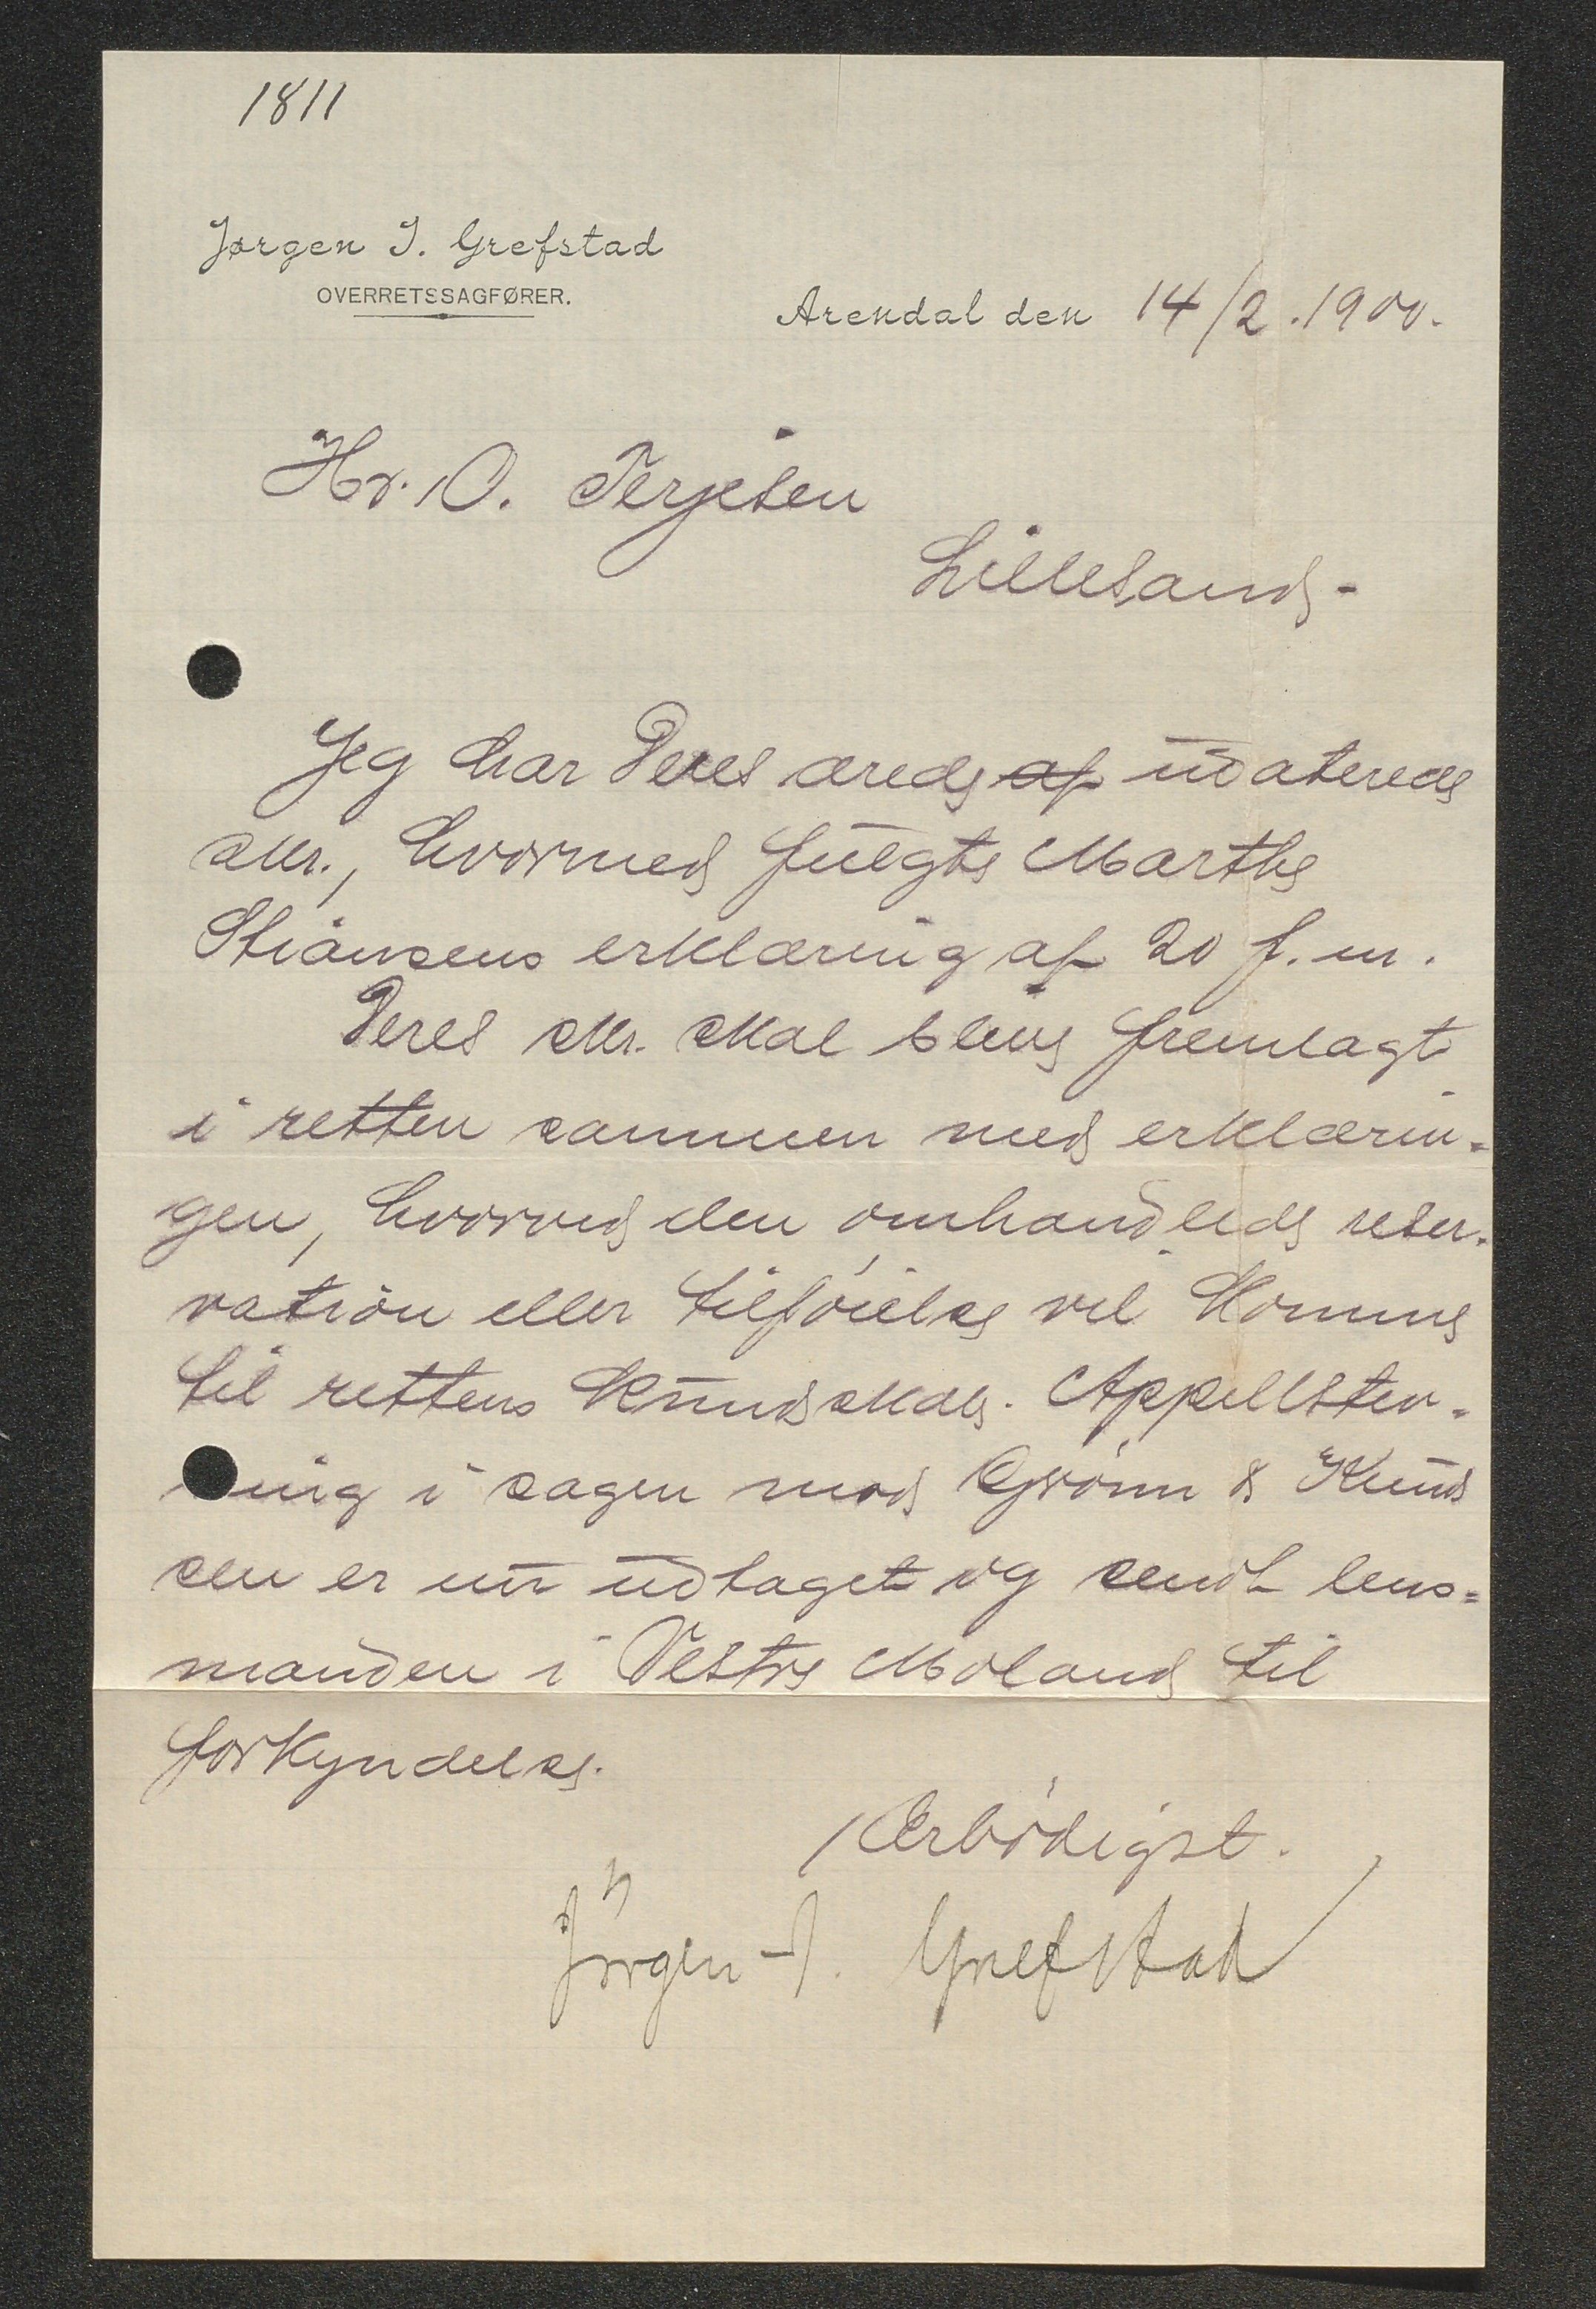 1811
Jørgen J. Grefstad
OVERRETSSAGFØRER.
Arendal den 14/2.1900.
Hr. O. Terjesen
Lillesand.
Jeg har Deres ærede af udaterede
skr., hvormed fulgte Marthe
Stiansens erklæring af 20 f.m.
Deres skr. skal blive fremlagt
i retten sammen med erklærin-
gen, hvorved den omhandlede reser-
vation eller tilføielse vil komme
til rettens kundskab. Appelstev-
ning i sagen mod Grønn & Knud
sen er nu udtaget og sendt lens-
manden i Vestre Moland til
forkyndelse.
Ærbødigst.
Jørgen J. Grefstad